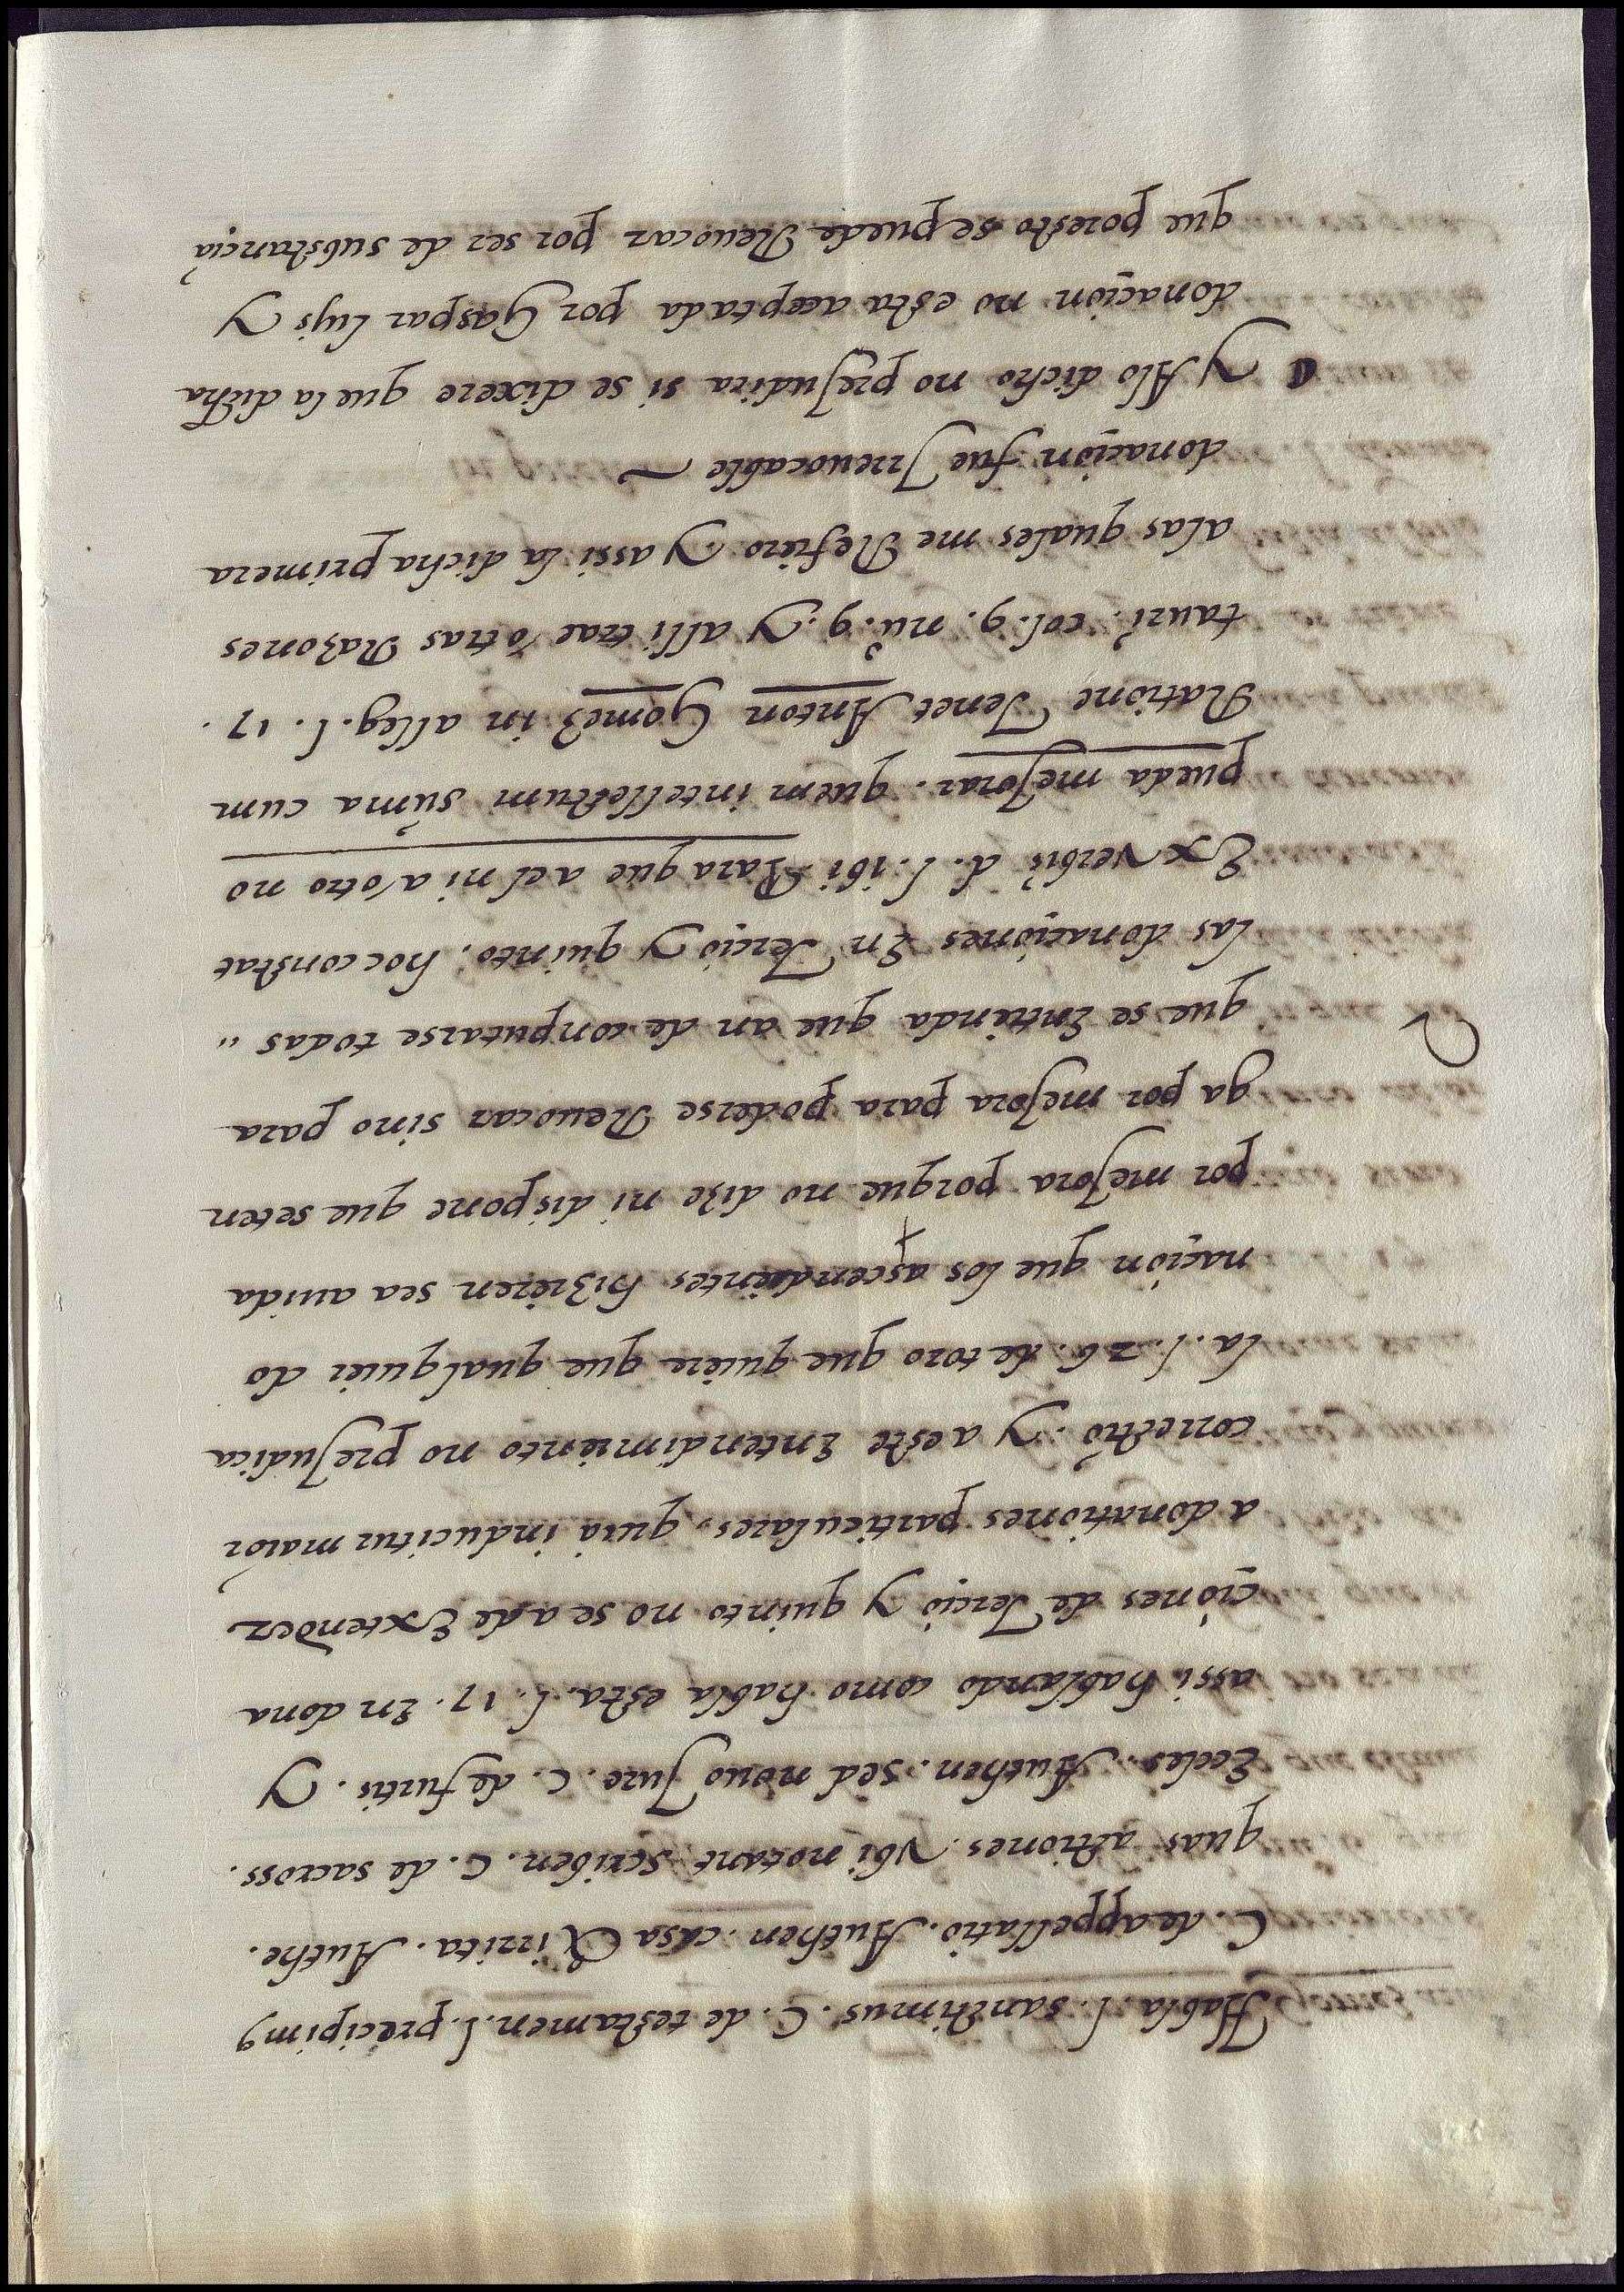 Habla. l. sanctimus. C. de testamen. l. precipimꝰ
C. de appellatio. Authen. casa & irrita. Authe.
quas actiones. Vbi notant scriben. C. de sacross.
Eccles. Authen. sed nouo Jure. C. de furtis. Y
assi hablando como habla esta. l. 17. En dona
çiones de Terçio y quinto no se a de Extender
a donationes particulares, quia inducitur maior
correctio. Y a este Entendimiento no preJudica
la. l. 26. de toro que quiere que qualquier do
naçion que los ascendientes hizieren sea auida
por meJora porque no dize ni dispone que se ten
ga por meJora para poderse Reuocar sino para
que se Entienda que an de conputarse todas "
las donaçiones En Terçio y quinto. hoc constat
Ex verbis d. l. ibi Para que a el ni a otro no
pueda meJorar. quem intellectum sũma cum
Ratione Tenet Anton Gomez in alleg. l. 17.
tauri. col. 9. nũ. 9. Y alli trae otras Razones
alas quales me Refiero Y assi la dicha primera
donaçion fue Irreuocable ~
Y Alo dicho no preJudica si se dixere que la dicha
donaçion no esta aceptada por Gaspar luys Y
que por esto se puede Reuocar por ser de substançia